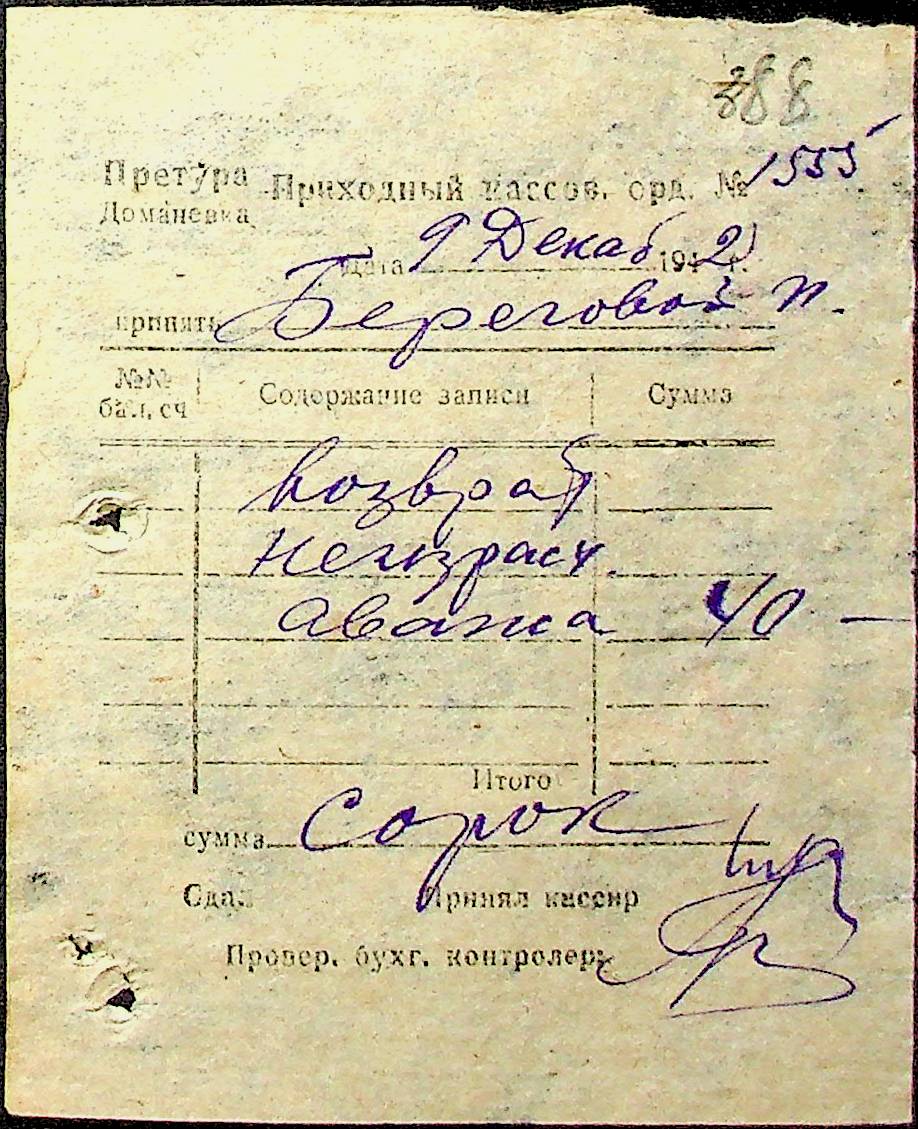 388
Претура Приходный кассов. орд. № 1555
Доманевка
Дата 9 Декаб 1942 г.
принять Береговой п.
№№ бал. сч Содержание записи Сумма
возврат
неизрасх.
аванса 40 —
Итого
сумма Сорок
Сдал Принял кассир
Провер. бухг. контролер